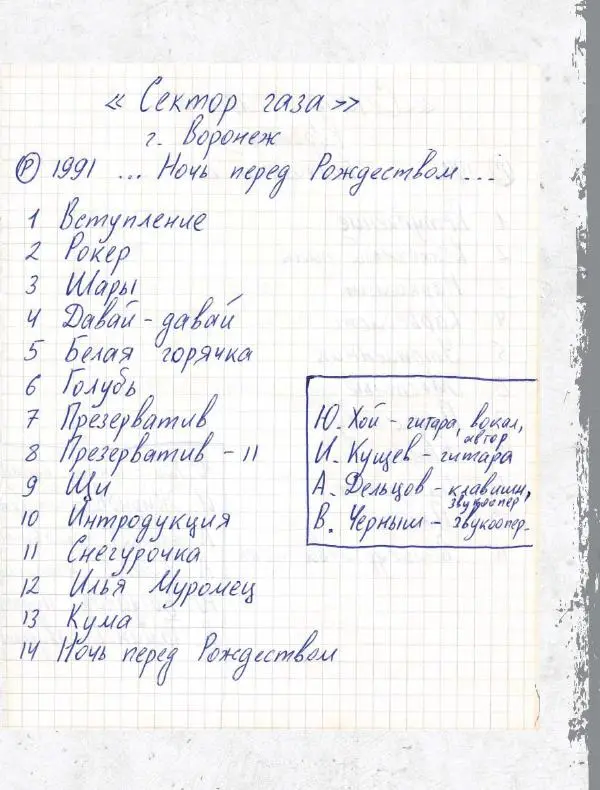 « Сектор газа»
г. Воронеж
Ⓟ 1991 ... Ночь перед Рождеством...
1 Вступление
2 Рокер
3 Шары
4 Давай-давай
5 Белая горячка
6 Голубь
7 Презерватив
8 Презерватив - II
9 Щи
10 Интродукция
11 Снегурочка
12 Илья Муромец
13 Кума
14 Ночь перед Рождеством
Ю. Хой - гитара, вокал,
автор
И. Кущев - гитара
А. Дельцов - клавиши,
звукоопер
В. Черныш - звукоопер.